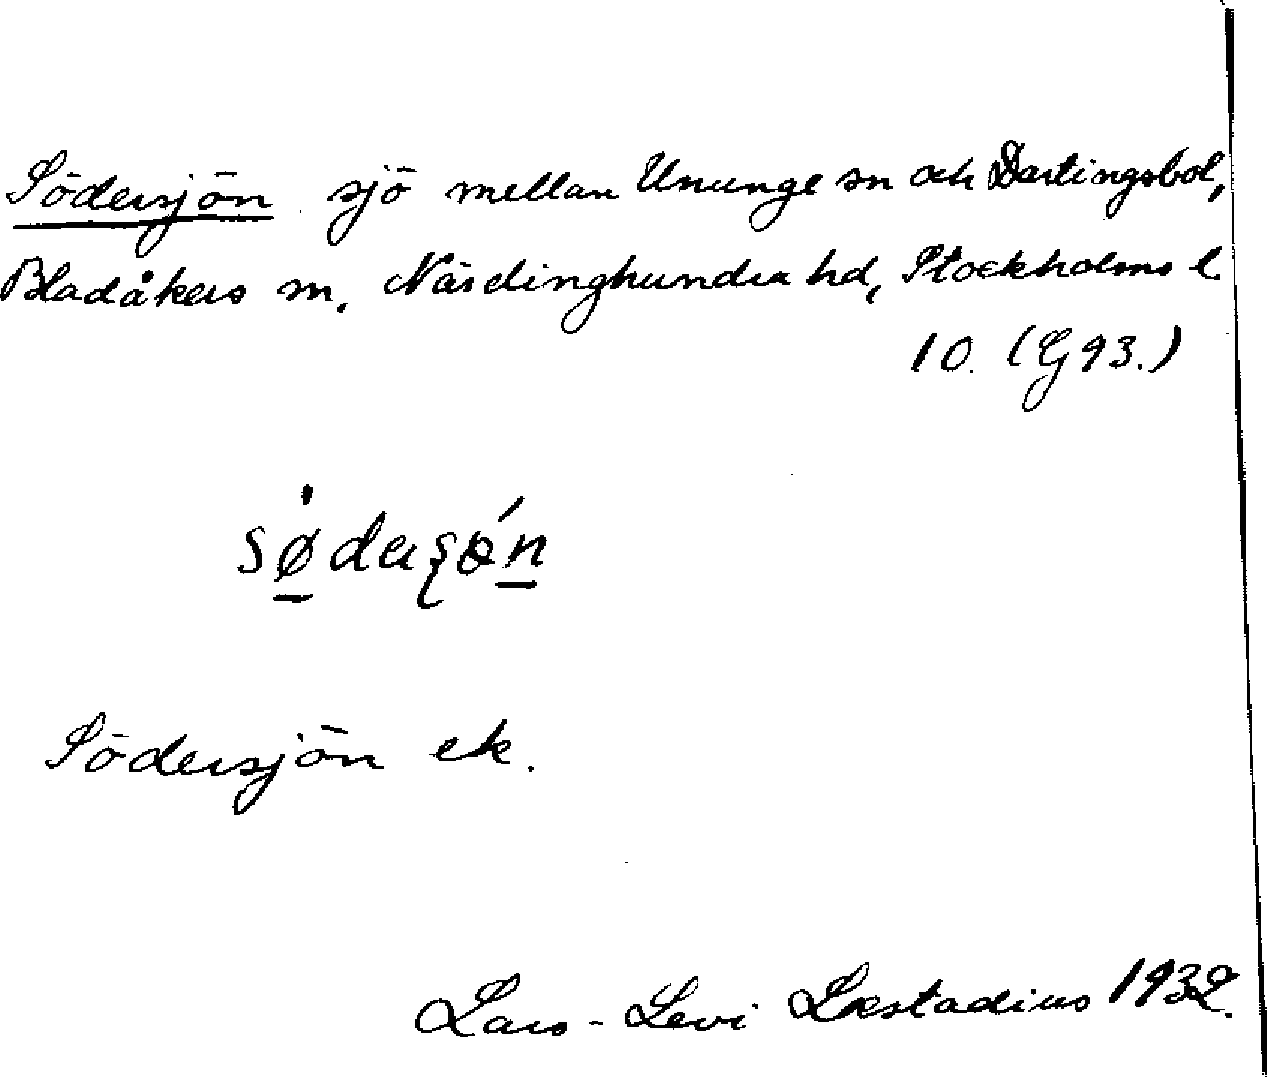 Södersjön sjö mellan Ununge sn och Dartingsbol,
Bladåkers sn. Närdinghundra hd, Stockholms l.
10. (G 93.)
Södersjön ek.
Lars-Levi Læstadius 1932.